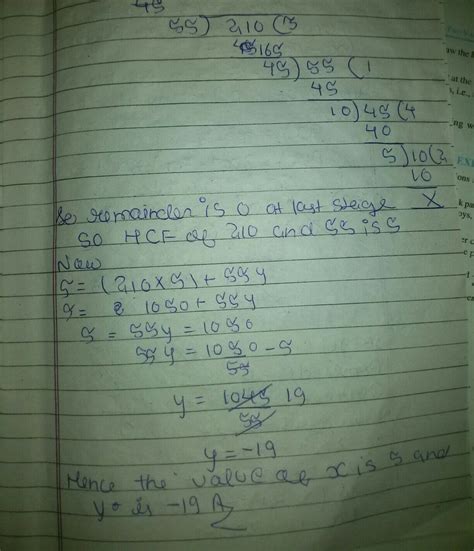 45
55) 210 (3
165
45) 55 (1
45
10) 45 (4
40
5) 10 (2
10
X
remainder is 0 at last stage
SO HCF of 210 and 55 is 5
Now
5 = (210 X 5) + 55y
5 = 1050 + 55y
5 = 55y = 1050
55y = 1050 - 5
55
y = 1045 19
55
y = -19
Hence the value of x is 5 and
y is -19 A